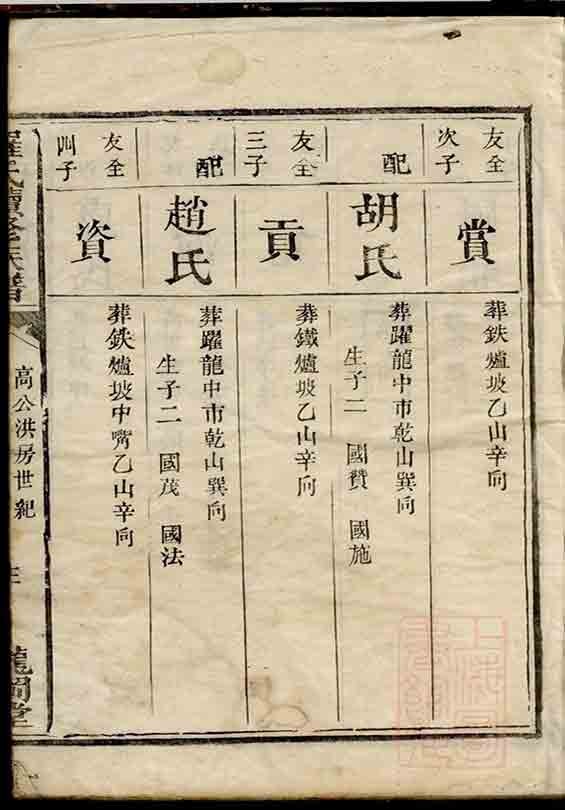 友全
次子
賞
葬鉄爐坡乙山辛向
配
胡氏
葬躍龍中市乾山巽向
生子二 國贊 國施
友全
三子
貢
葬鐵爐坡乙山辛向
配
趙氏
葬躍龍中市乾山巽向
生子二 國茂 國法
友全
四子
資
葬鉄爐坡中嘴乙山辛向
高公洪房世紀